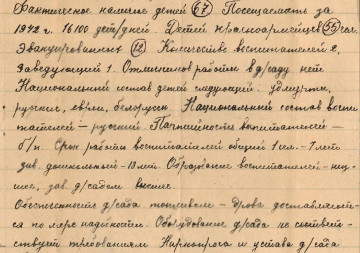 Фактическое наличие детей 67 Посещаемость за
1942 г. 16100 дет/дней. Детей красноармейцев 55 чел.
Эвакуированных 12. Количество воспитателей 2,
заведующей 1. Отличников работы в д/саду нет
Национальный состав детей следующий: удмурты,
русские, евреи, белорусы. Национальный состав воспи
тателей – русский. Партийность воспитателей –
б/п. Срок работы воспитателей общий 1 чел. - 7 лет
зав. дошкольный - 10 лет. Образование воспитателей - низ-
шее, зав. д/садом высшее.
Обеспеченность д/сада топливом - Дрова доставляют-
ся по мере надобности. Оборудование д/сада не соответ-
ствует требованиям Наркопроса и устава д/сада